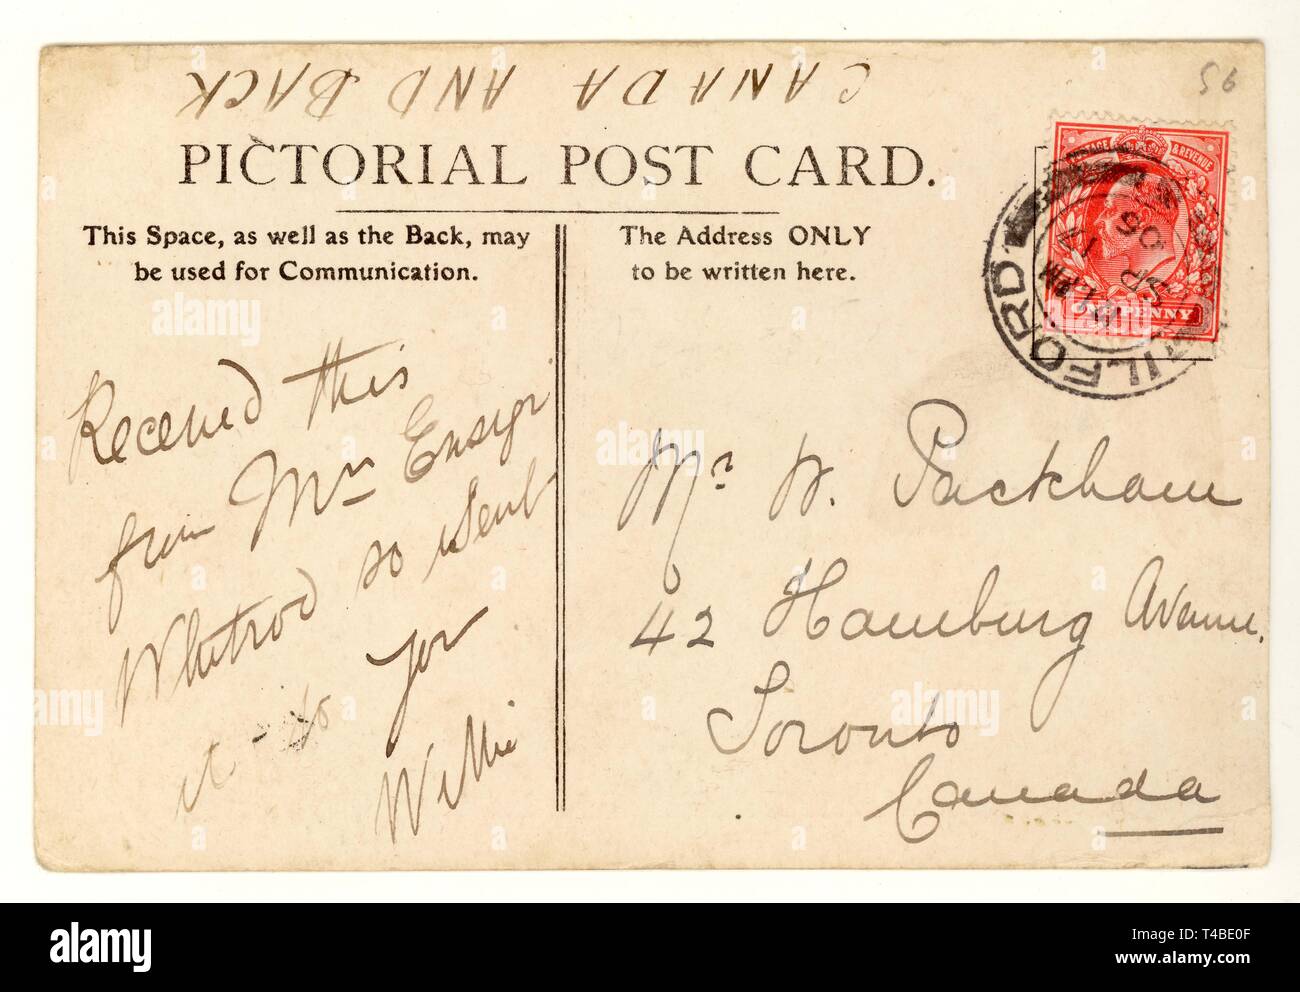 CANADA AND BACK
56
PICTORIAL POST CARD.
This Space, as well as the Back, may
be used for Communication.
The Address ONLY
to be written here.
POSTAGE & REVENUE
ONE PENNY
ILFORD
SP
05
Received this
from Mrs Ensign
Whitrod so sent
it to you
Willie
Mr W. Packham
42 Hamburg Avenue.
Toronto
Canada
alamy
Image ID: T4BE0F
www.alamy.com